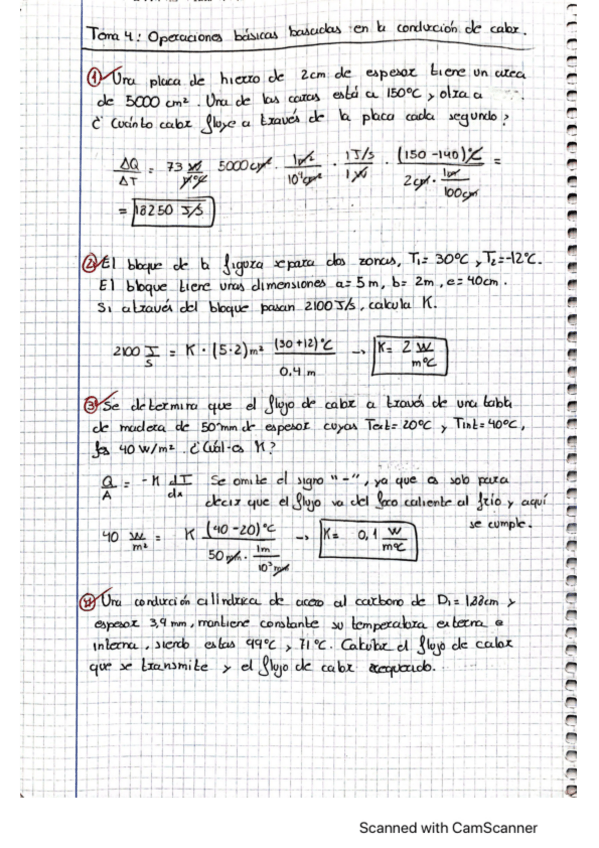 Tema 4: Operaciones básicas basadas en la conducción de calor.
① Una placa de hierro de 2cm de espesor tiene un area
de 5000 cm². Una de las caras está a 150°C y otra a
¿Cuánto calor fluye a través de la placa cada segundo?
ΔQ/ΔT = 73 W/m°C 5000cm² · 1m²/10⁴cm² · 1J/s/1W · (150-140)°C/2cm · 1m/100cm =
= 18250 J/s
② El bloque de la figura separa dos zonas, T₁= 30°C y T₂=-12°C.
El bloque tiene unas dimensiones a= 5m, b= 2m, e= 40cm.
Si através del bloque pasan 2100 J/s, calcula K.
2100 J/s = K · (5·2)m² (30+12)°C/0.4 m → K= 2 W/m°C
③ Se determina que el flujo de calor a través de una tabla
de madera de 50mm de espesor cuyas Text= 20°C y Tint= 40°C,
es 40 W/m². ¿Cuál es K?
Q/A = -K dT/dx Se omite el signo "-", ya que es solo para
decir que el flujo va del foco caliente al frío y aquí
se cumple.
40 W/m² = K (40-20)°C/50mm · 1m/10³mm → K= 0,1 W/m°C
Una conducción cilíndrica de acero al carbono de D₁= 1,88cm y
espesor 3,9mm, mantiene constante su temperatura externa e
interna, siendo estas 99°C y 71°C. Calcular el flujo de calor
que se transmite y el flujo de calor requerido.
Scanned with CamScanner